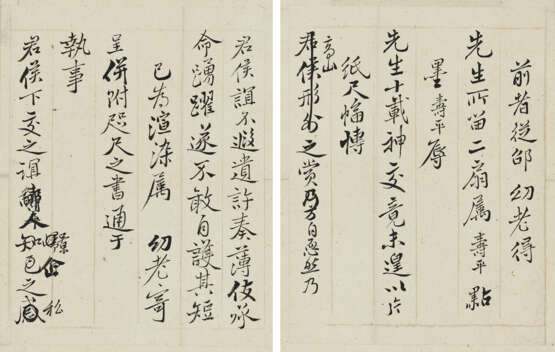 前者從邵幼老得
先生所留二扇属壽平點
墨壽平辱
先生十載神交竟未遑以片
紙尺幅博
高山
君侯形外之賞乃方自愿然乃
君侯誼不遐遺許奏薄伎承
命踴躍遂不敢自護其短
已為渲染属幼老寄
呈併附咫尺之書通于
執事
君侯下交之誼
知己之感